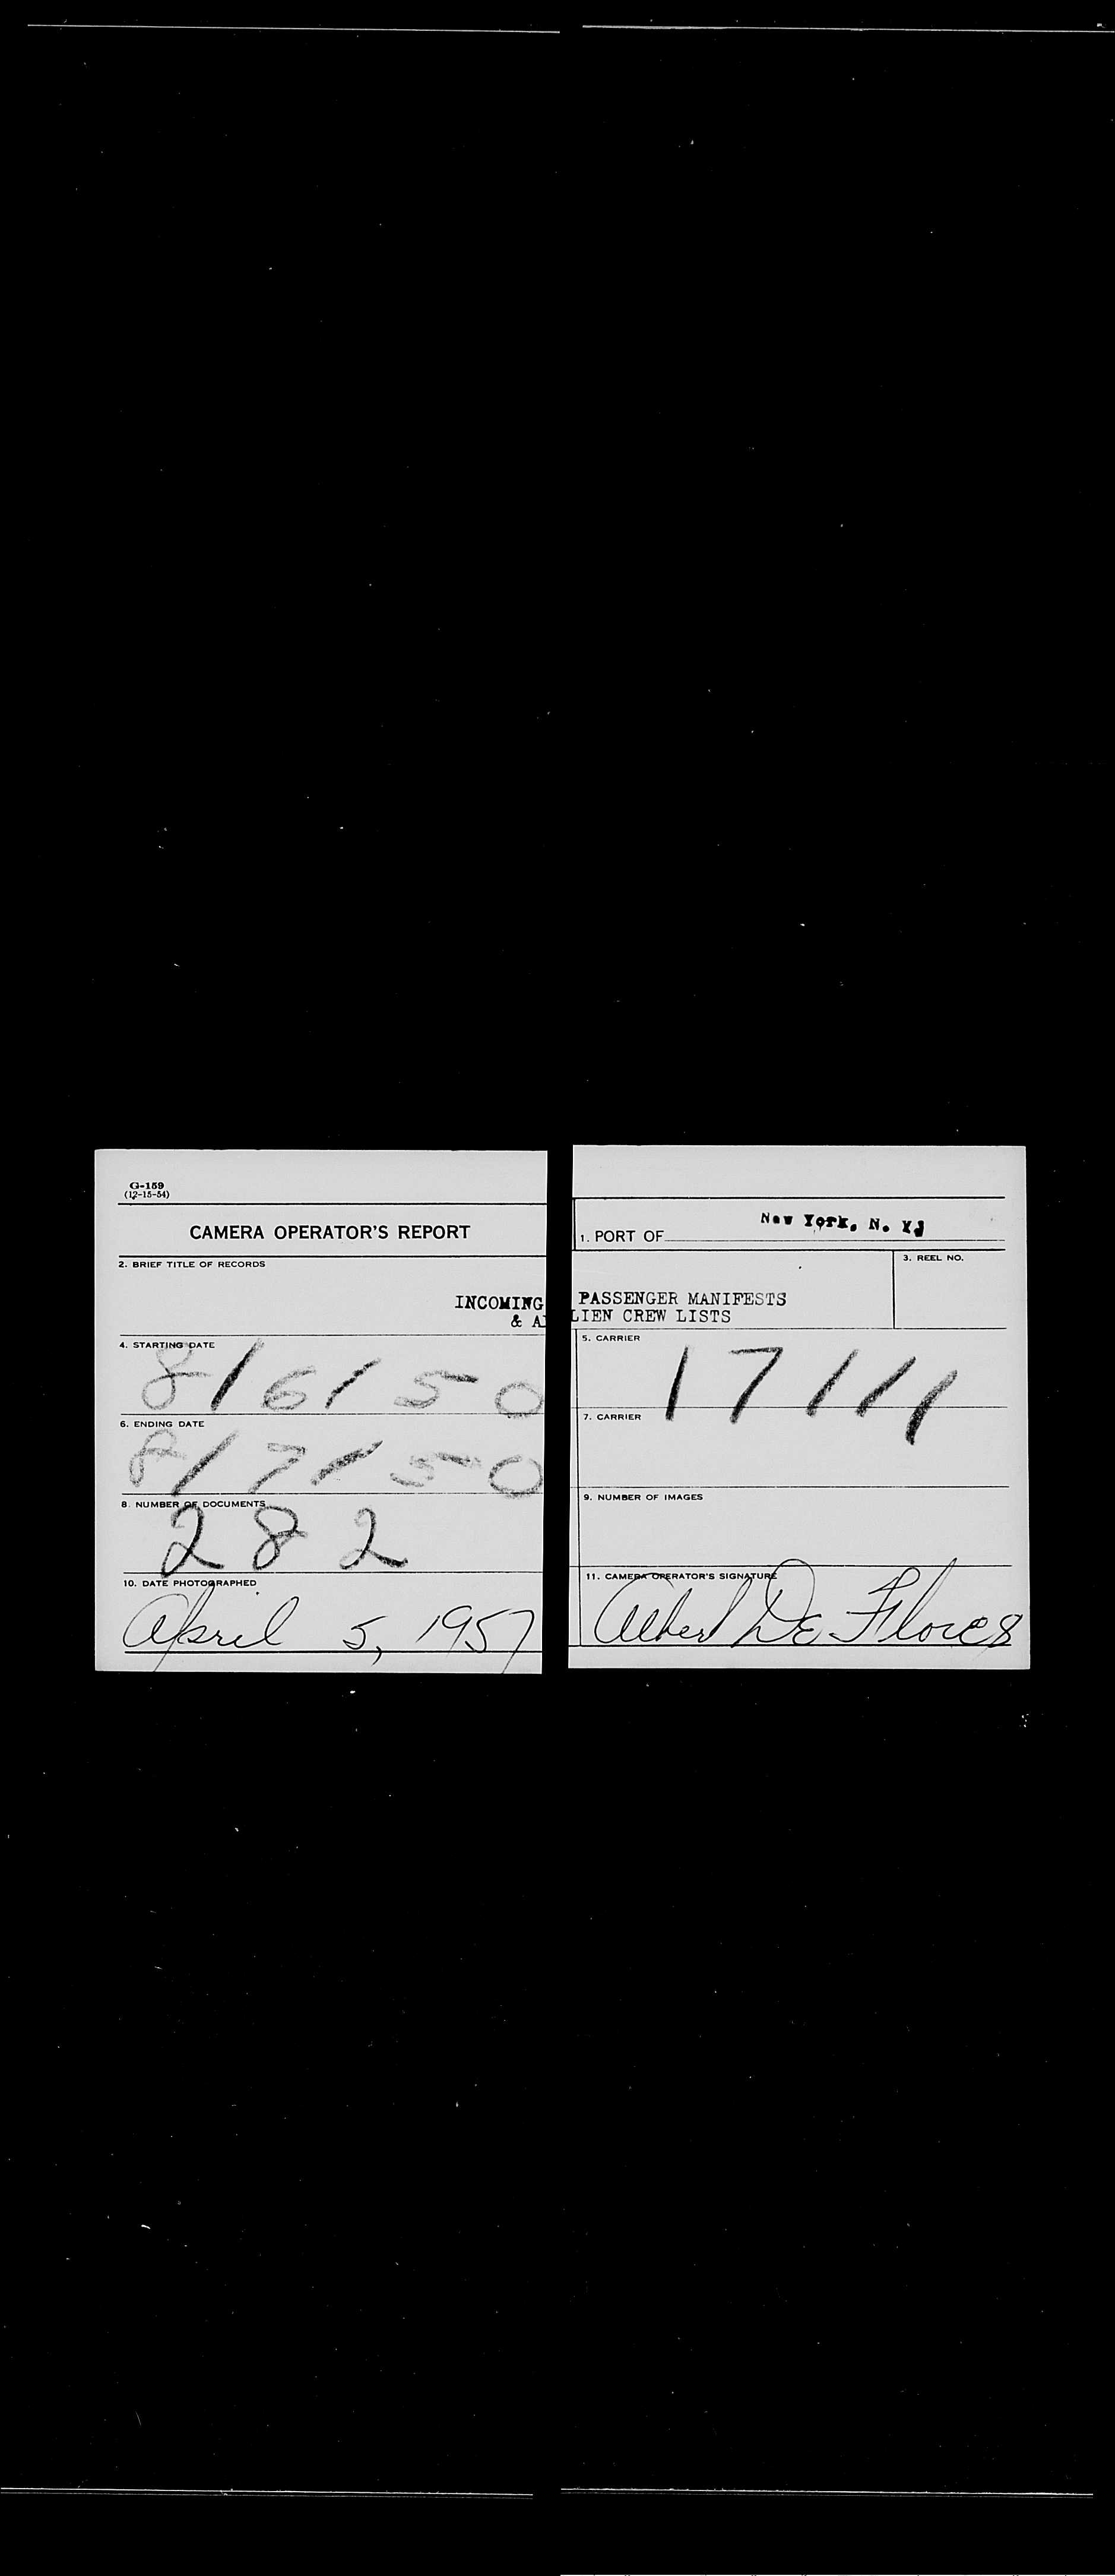 G-159
(12-15-54)
CAMERA OPERATOR'S REPORT
1. PORT OF New York, N. Y.
2. BRIEF TITLE OF RECORDS
3. REEL NO.
INCOMING PASSENGER MANIFESTS
& ALIEN CREW LISTS
4. STARTING DATE
8/6/50
5. CARRIER
17111
6. ENDING DATE
8/7/50
7. CARRIER
8. NUMBER OF DOCUMENTS
282
9. NUMBER OF IMAGES
10. DATE PHOTOGRAPHED
April 5, 1957
11. CAMERA OPERATOR'S SIGNATURE
Albert De Flores